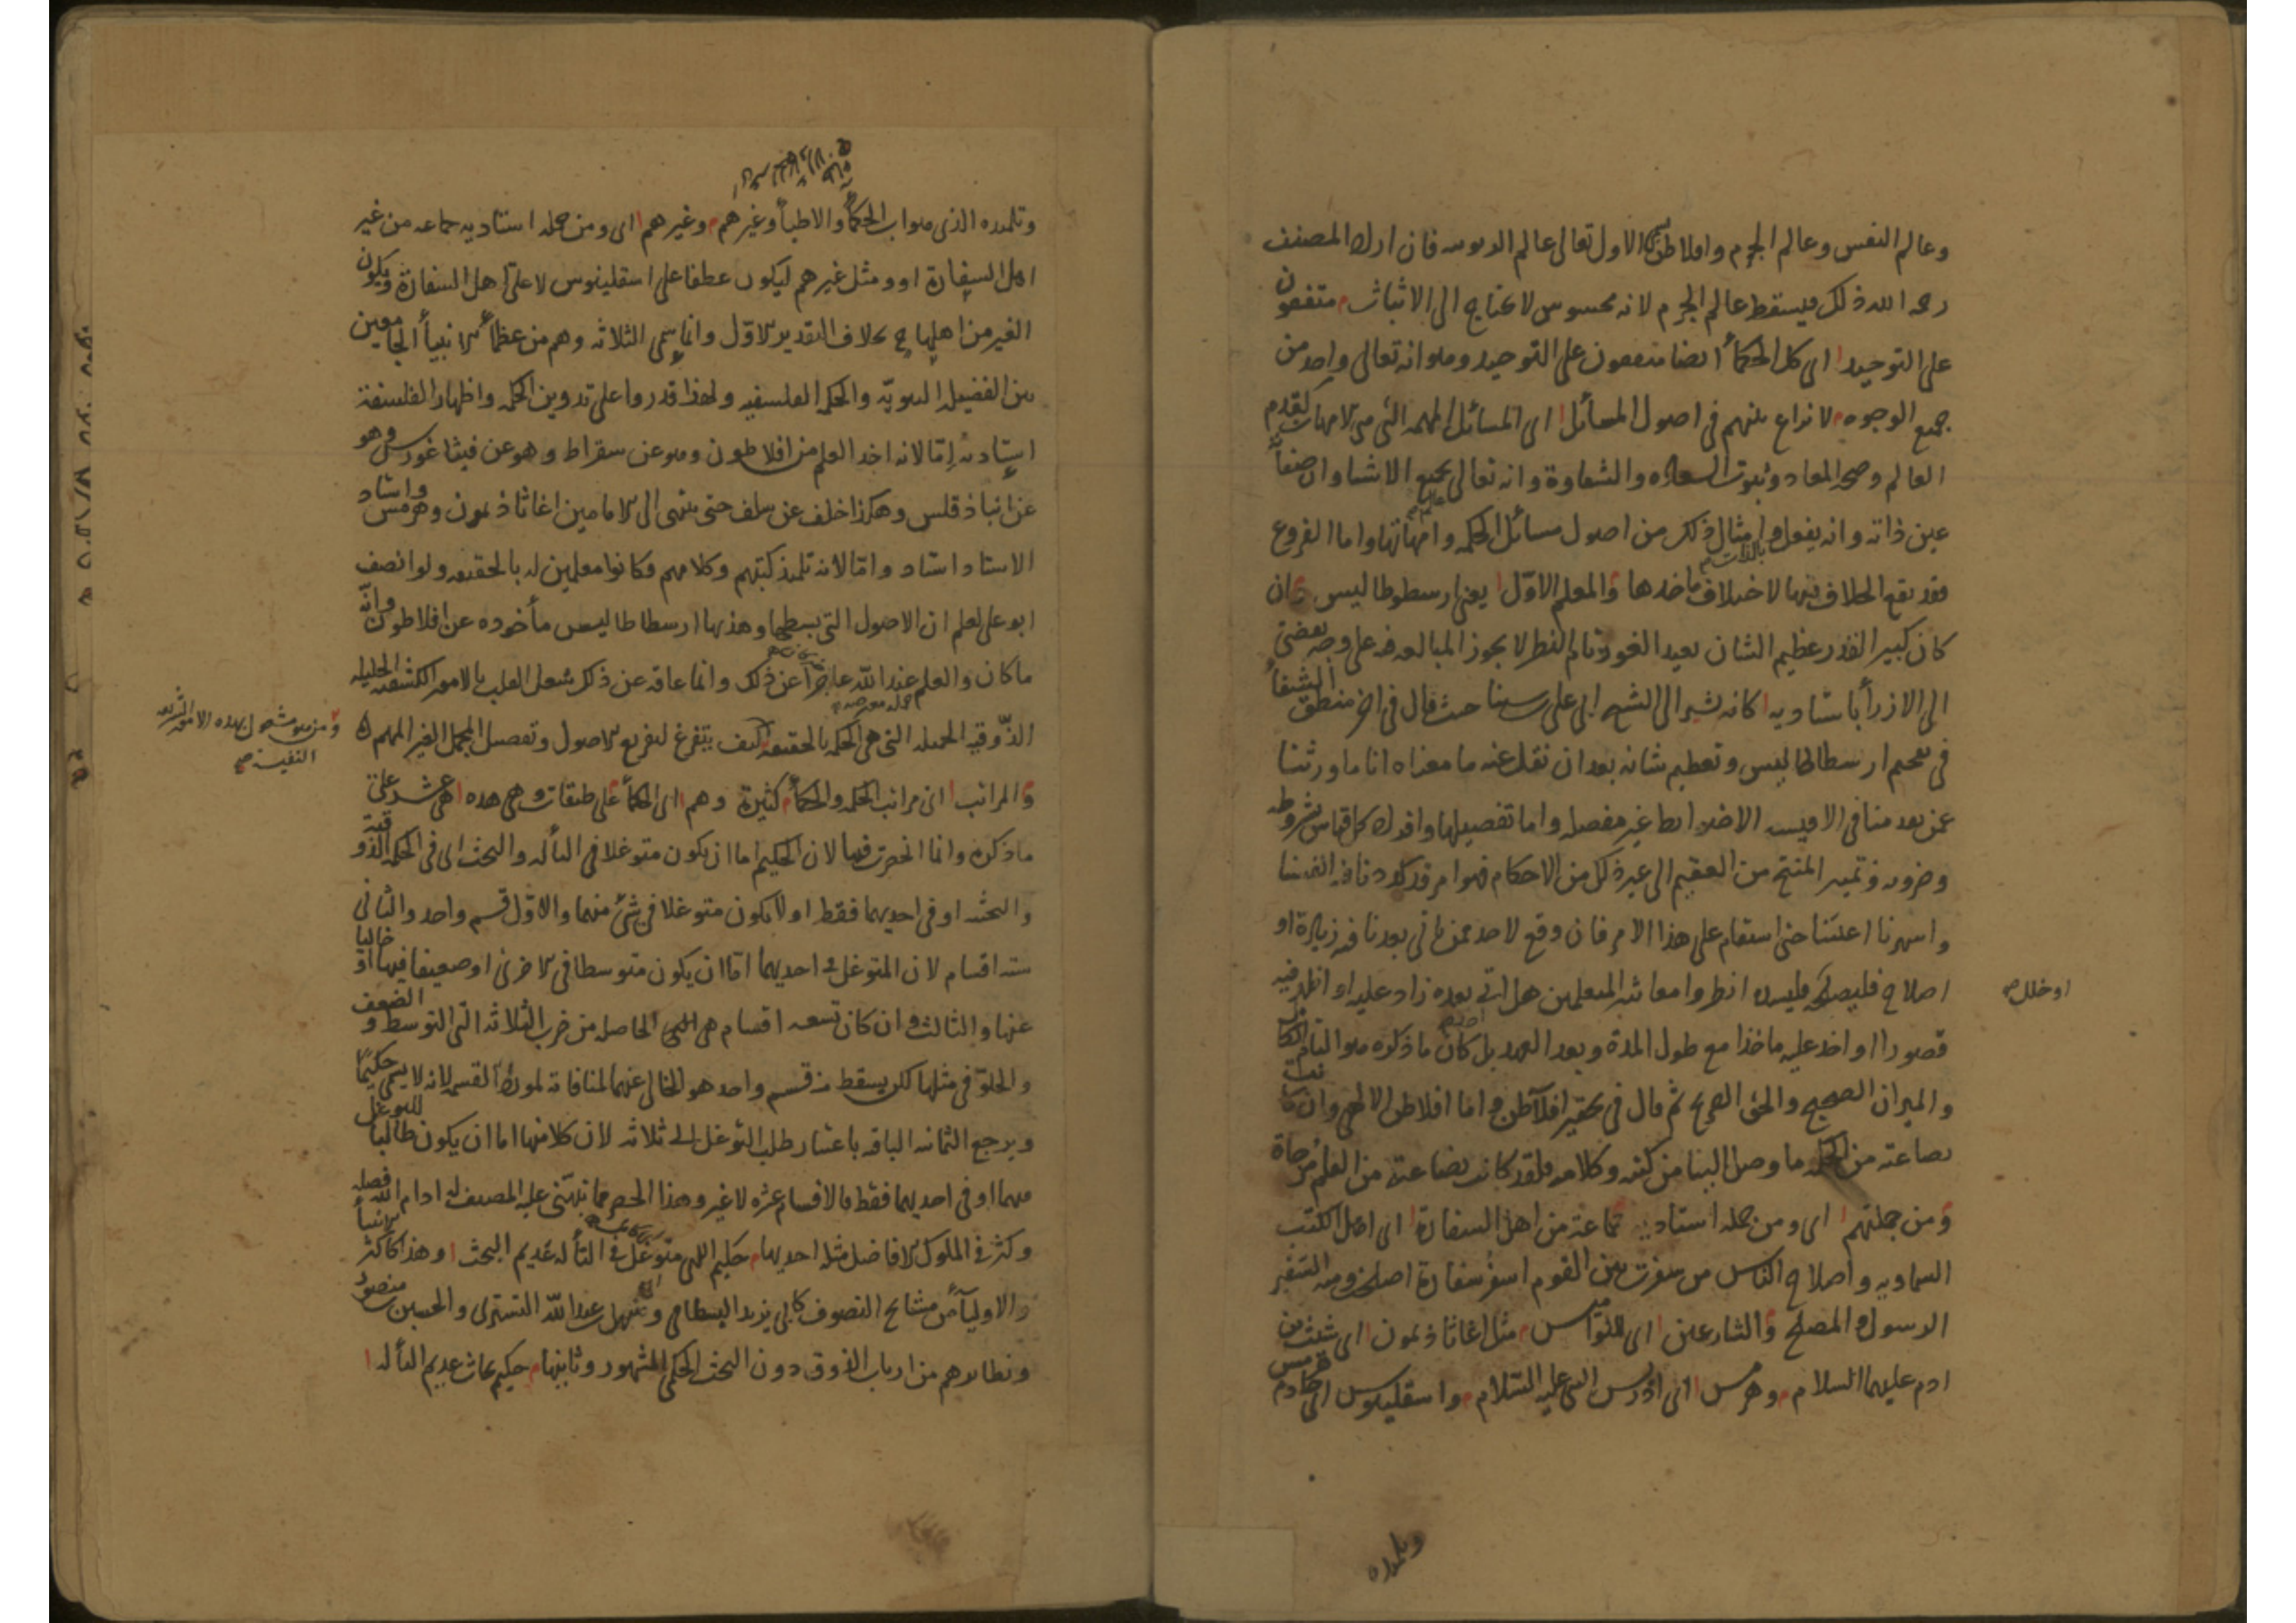 وعالم النفس وعالم الجرم وافلاطن يسمى الاول تعالى عالم الربوبيه فان اراد المصنف
رحمه الله ذلك فيسقط عالم الجرم لانه محسوس لا يحتاج الى الاثبات متفقون
على التوحيد اى كل الحكمأ ايضا متفقون على التوحيد وهو انه تعالى واحد من
جميع الوجوه لا نزاع بينهم فى اصول المسائل اى المسائل المهمه التى هى الامهات كقدم
العالم وصحه المعاد وثبوت السعاده والشقاوة وانه تعالى عالم بجميع الاشيا وان صفاته
عين ذاته وانه يفعل بالذات وامثال ذلك من اصول مسائل الحكمه وامهاتها واما الفروع
فقد يقع الخلاف فيها لاختلاف ماخذها والمعلم الاوّل يعنى ارسطوطاليس وان
كان كبير القدر عظيم الشان بعيد الغور تام النظر لا يجوز المبالغه فيه على وجه يفضى
الى الازرأ باستاديه كانه يشير الى الشيخ ابى على سينا حيث قال فى اخر منطق الشفأ
فى تفخيم ارسطاطاليس وتعظيم شانه بعد ان نقل عنه ما معناه انا ما ورثنا
عمن تقدمنا فى الاقيسه الا ضوابط غير مفصله واما تفصيلها وافراد كل قياس بشروطه
وضروبه وتمييز المنتج من العقيم الى غير ذلك من الاحكام فهو امر قد كددنا فيه انفسنا
واسهرنا اعيننا حتى استقام على هذا الامر فان وقع لاحد ممن ياتى بعدنا فيه زيادة او
اصلاح فليصلحه او خلل فليسده انظروا معاشر المتعلمين هل اتى بعده زاد عليه او اظهر فيه
قصورا او اخذ عليه ماخذا مع طول المدة وبعد العهد بل كان ما ذكره هو التام الكامل
والميزان الصحيح والحق الصريح ثم قال فى تحقير افلاطن واما افلاطن الالهى فان كانت
بضاعته من الحكمه ما وصل الينا من كتبه وكلامه فلقد كانت بضاعته من العلم مزجاة
ومن جملتهم اى ومن جمله استاديه جماعة من اهل السفارة اى اهل الكتب
السماويه واصلاح الناس من سفرت بين القوم اسفر سفارة اصلحت ومنه السفير
الرسول والمصلح والشارعين اى للنواميس مثل اغاثاذيمون اى شيث بن
ادم عليهما السلام وهرمس اى ادريس النبى عليه السّلام واسقلينوس اى خادم هرمس
وتلميذه
وتلميذه الذى هو اب الحكمأ والاطبأ وغيرهم وغيرهم اى ومن جمله استاديه جماعه من غير
اهل السفارة او ومثل غيرهم ليكون عطفا على اسقلينوس لا على اهل السفارة ويكون
الغير من اهلها ح بخلاف التقدير الاوّل وانما سمى الثلاثه وهم من عظمأ الانبيأ الجامعين
بين الفضيله النبويّه والحكمه الفلسفيه ولهذا قدروا على تدوين الحكمه واظهار الفلسفة
استاديه اِمّا لانه اخذ العلم من افلاطون وهو عن سقراط وهو عن فيثاغورس وهو
عن انباذقلس وهكذا خلف عن سلف حتى ينتهى الى الامامين اغاثاذيمون وهرمس واستاد
الاستاد استاد وامّا لانه تلميذ كتبهم وكلامهم فكانوا معلمين له بالحقيقه ولو انصف
ابو على لعلم ان الاصول التى بسطها وهذبها ارسطاطاليس مأخوذه عن افلاطون وانّه
ما كان والعلم عند اللّه عاجزا عن ذلك وانما عاقه عن ذلك شغل القلب بالامور الكشفيه الجليله
الذّوقيه الجميله التى هى الحكمه بالحقيقه ومن هو مشغول بهذه الامور الشريفه النفيسة كيف يتفرغ لتفريع الاصول وتفصيل المجمل الغير المهم
والمراتب اى مراتب الحكمه والحكمأ كثيرة وهم اى الحكمأ على طبقات وهى هذه هى عشر على
ما ذكره وانما انحصرت فيها لان الحكيم اما ان يكون متوغلا فى التأله والبحث اى فى الحكمه الذوقية
والبحثيه او فى احديهما فقط او لا يكون متوغلا فى شئ منهما والاوّل قسم واحد والثانى
سته اقسام لان المتوغل فى احديهما امّا ان يكون متوسطا فى الاخرى او ضعيفا فيها او خاليا
عنها والثالث وان كان تسعه اقسام هى الحاصله من ضرب الثلاثه التى التوسط والضعف
والخلوّ فى مثلها لكن يسقط منه قسم واحد هو الخالى عنهما لمنافاته لمورد القسمه لانه لا يسمى حكيمًا
ويرجع الثمانيه الباقيه باعتبار طلب التوغل الى ثلاثه لان كلا منها اما ان يكون طالبا للتوغل
فيهما او فى احديهما فقط فالاقسام عشره لا غير وهذا الحصر مما نبّهنى عليه المصنف ادام الله فضله
وكثر فى الملوك الافاضل مثله احديها حكيم الهى متوغل فى التأله عديم البحث وهذا كاكثر الانبيأ
والاوليأ من مشايخ التصوف كابى يزيد البسطامى وسهل بن عبد اللّه التسترى والحسين بن منصور
ونظايرهم من ارباب الذوق دون البحث الحكمى المشهور وثانيها حكيم بحاث عديم التأله